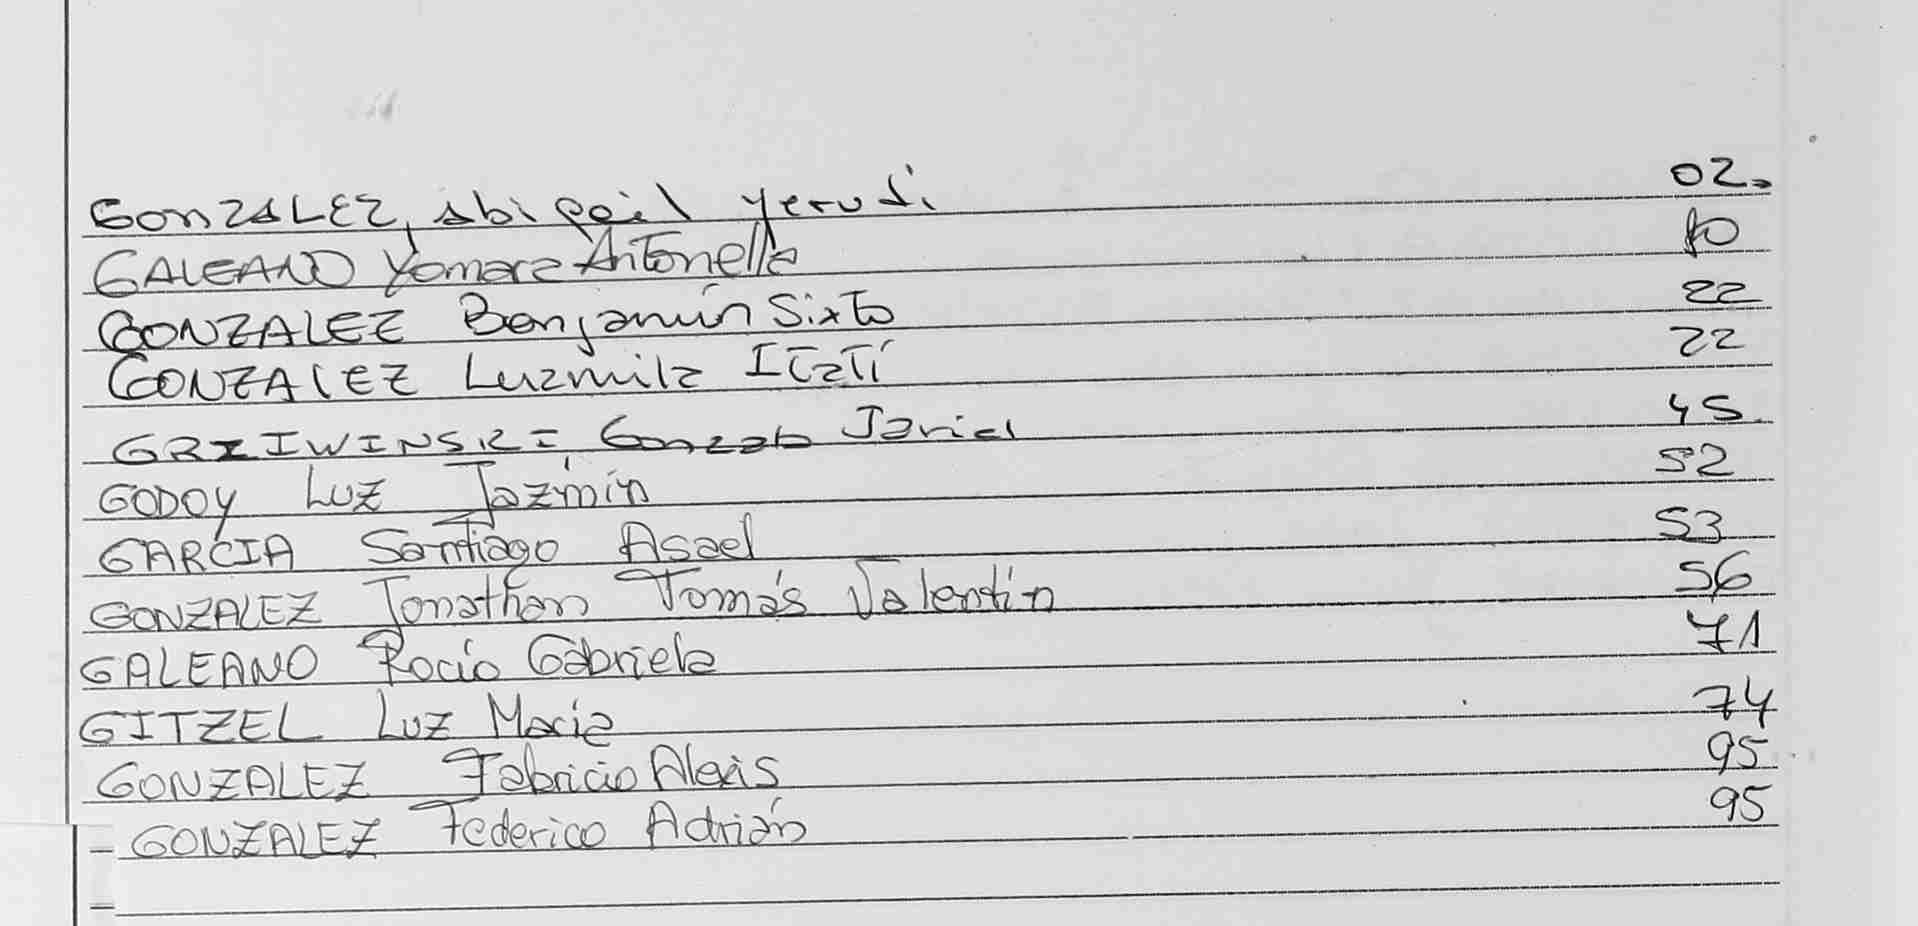 GONZALEZ, Abigail Yerudi 02.
GALEANO Yomara Antonella 10
GONZALEZ Benjamín Sixto 22
GONZALEZ Luzmila Itatí 22
GRZIWINSKI, Gonzalo Javiel 45
GODOY Luz Jazmín 52
GARCIA Santiago Asael 53
GONZALEZ Jonathan Tomás Valentín 56
GALEANO Rocío Gabriela 71
GITZEL Luz María 74
GONZALEZ Fabricio Alexis 95
GONZALEZ Federico Adrián 95